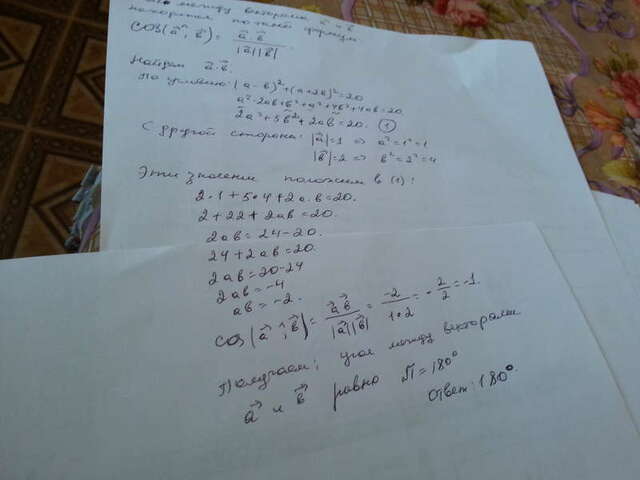 между векторами a и b
находится по этой формуле
cos(a⃗ ^, b⃗) = a⃗·b⃗ / |a⃗||b⃗|
Найдем a⃗·b⃗.
По условию: (a-b)²+(a+2b)²=20
a²-2ab+b²+a²+4b²+4ab=20
2a²+5b²+2ab=20. (1)
С другой стороны: |a⃗|=1 ⇒ a²=1²=1
|b⃗|=2 ⇒ b²=2²=4
Эти значения положим в (1):
2·1+5·4+2a·b=20.
2+22+2ab=20.
2ab=24-20.
24+2ab=20.
2ab=20-24
2ab=-4
ab=-2.
cos(a⃗ ^, b⃗)= a⃗b⃗ / |a⃗||b⃗| = -2 / 1·2 = - 2/2 = -1.
Получаем; угол между векторами
a⃗ и b⃗ равно π=180°
Ответ: 180°.